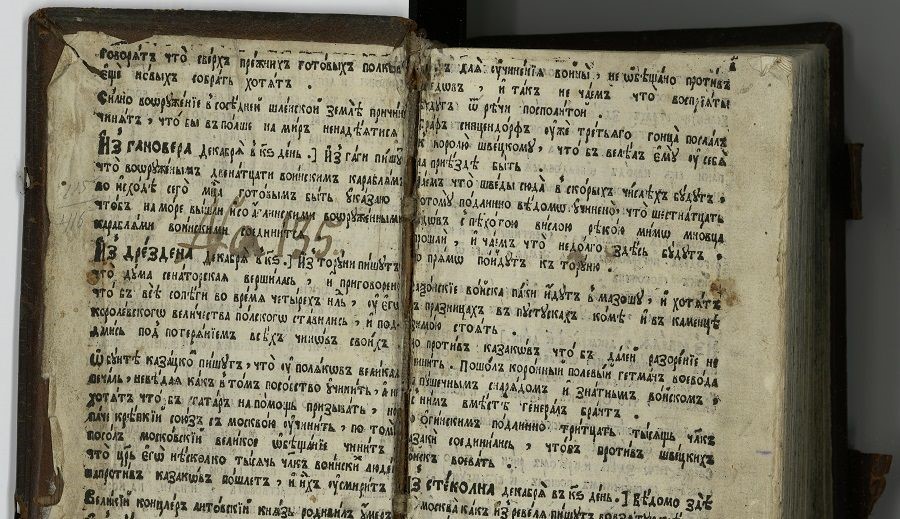 говорѧтъ что сверхъ прежнихъ готовыхъ полковъ
еще новыхъ собрать хотѧтъ .
Силно воѡружение в соседней шленской земле причин
чинѧтъ , что бы в полше на миръ ненадеѧтисѧ
Из гановера декабрѧ в кѕ день .] Из гаги пишу
что воѡруженымъ двенатцати воинскимъ караблѧмъ
во исходе сего мца готовымъ быть указано
чтобъ на море вышли и со аглинскими воѡруженными
караблѧми воинскими соединитсѧ
№ 155.
Из дрездена декабрѧ в кѕ .] Из торуни пишутъ
что дума сенаторскаѧ вершилась , и приговорено
что бъ все сопеги во время четырехъ нль , у его
королевского величества полского ставились , и под
дались под потерѧнїемъ всехъ чиновъ своихъ
Ѡ бунте казацкомъ пишутъ , что у полѧковъ великаѧ
печаль , неведаѧ какъ в томъ пособство учинить , а не
хотѧтъ что бъ татаръ на помощь призывать , но
паче крепкий союзъ съ москвою учинить , по томъ
посолъ московский великое ѡбещание чинитъ
что црь его несколко тысѧчь члкъ воински людей
напротивъ казаковъ пошлетъ , и ихъ усмиритъ
Великий концлеръ литовский кнѧзь родивилъ умеръ
длѧ учинениѧ войны , не ѡбещано противъ
ведовъ , и такъ не чаемъ что восприѧты
будутъ ѿ речи посполитой
графъ сницендорфъ уже третьѧго гонца послалъ
к королю швецкому , что бъ велелъ ему у себѧ
на приезде быть
чаемъ что шведы сюда в скорыхъ числехъ будутъ .
потому подлинно ведомо учинено что шестнатцать
с пехотою вислою рекою мимо мновца
прошли , и чаемъ что недолго здесь будутъ .
но прѧмо поидутъ къ торуню .
саѯонские войска паки идутъ в мазошу , и хотѧтъ
в празницахъ в пултускахъ коме и в каменце
зимою стоѧть .
но противъ казаковъ что бъ далеи разорение не
чинить . Пошолъ коронный полевый гетманъ воевода
пушечнымъ снарѧдомъ и знатнымъ войскомъ .
с нимъ вместе генералъ брантъ .
огинскимъ подлинно тритцать тысѧщь члкъ
казаки соединились , чтобъ противъ швецкихъ
войскъ воевать .
Из стеколна декабрѧ в кѕ день .] Ведомо зде
москва какъ из ревелѧ пишутъ